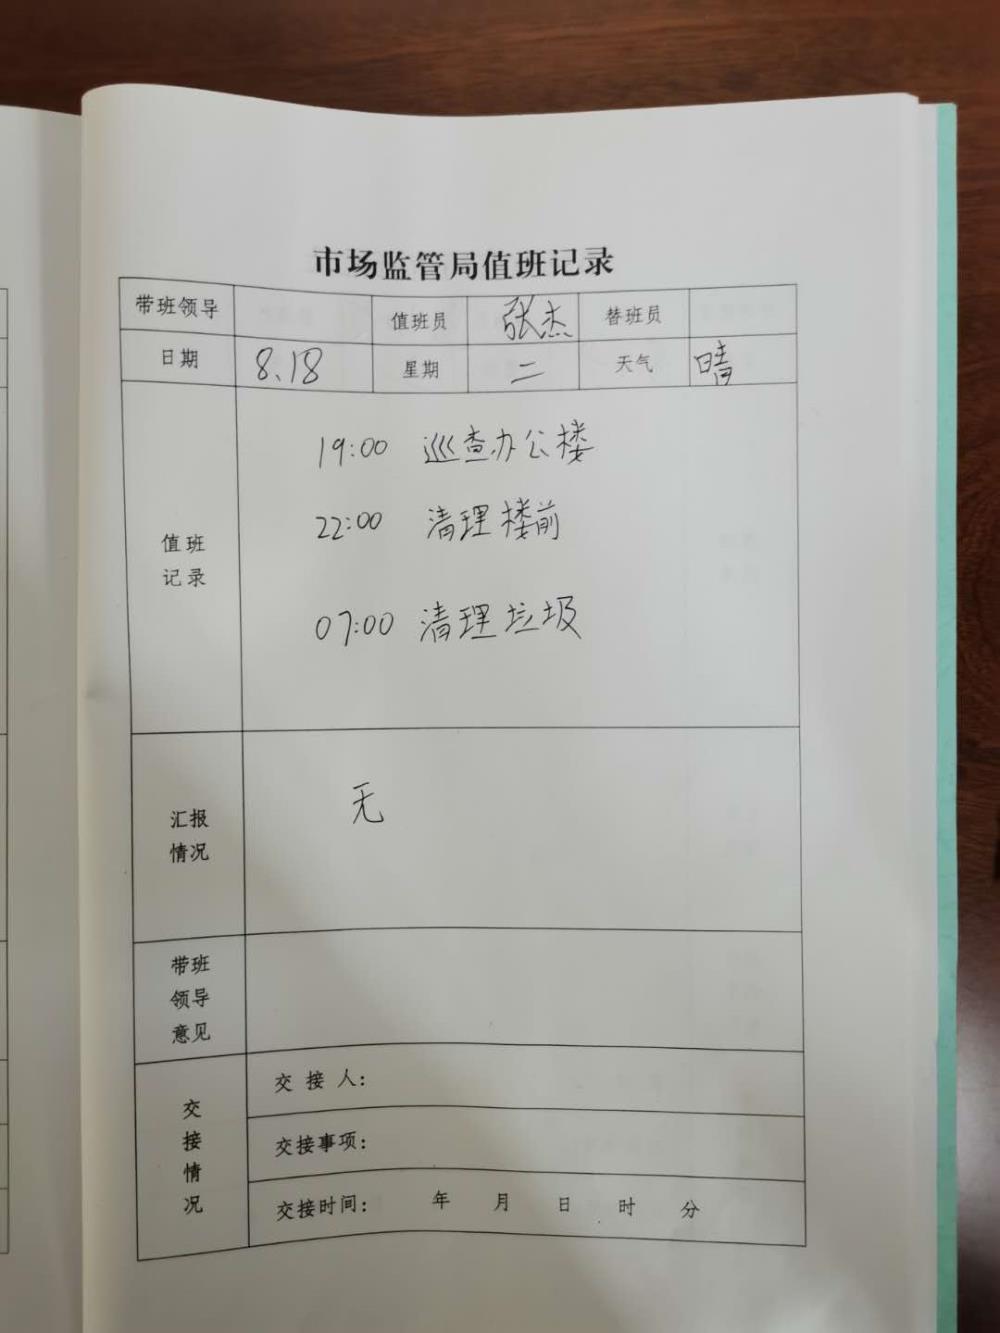 市场监管局值班记录
带班领导 值班员 张杰 替班员
日期 8.18 星期 二 天气 晴
19:00 巡查办公楼
22:00 清理楼前
值班
记录
07:00 清理垃圾
无
汇报
情况
带班
领导
意见
交接人:
交
接
情
况
交接事项:
交接时间: 年 月 日 时 分